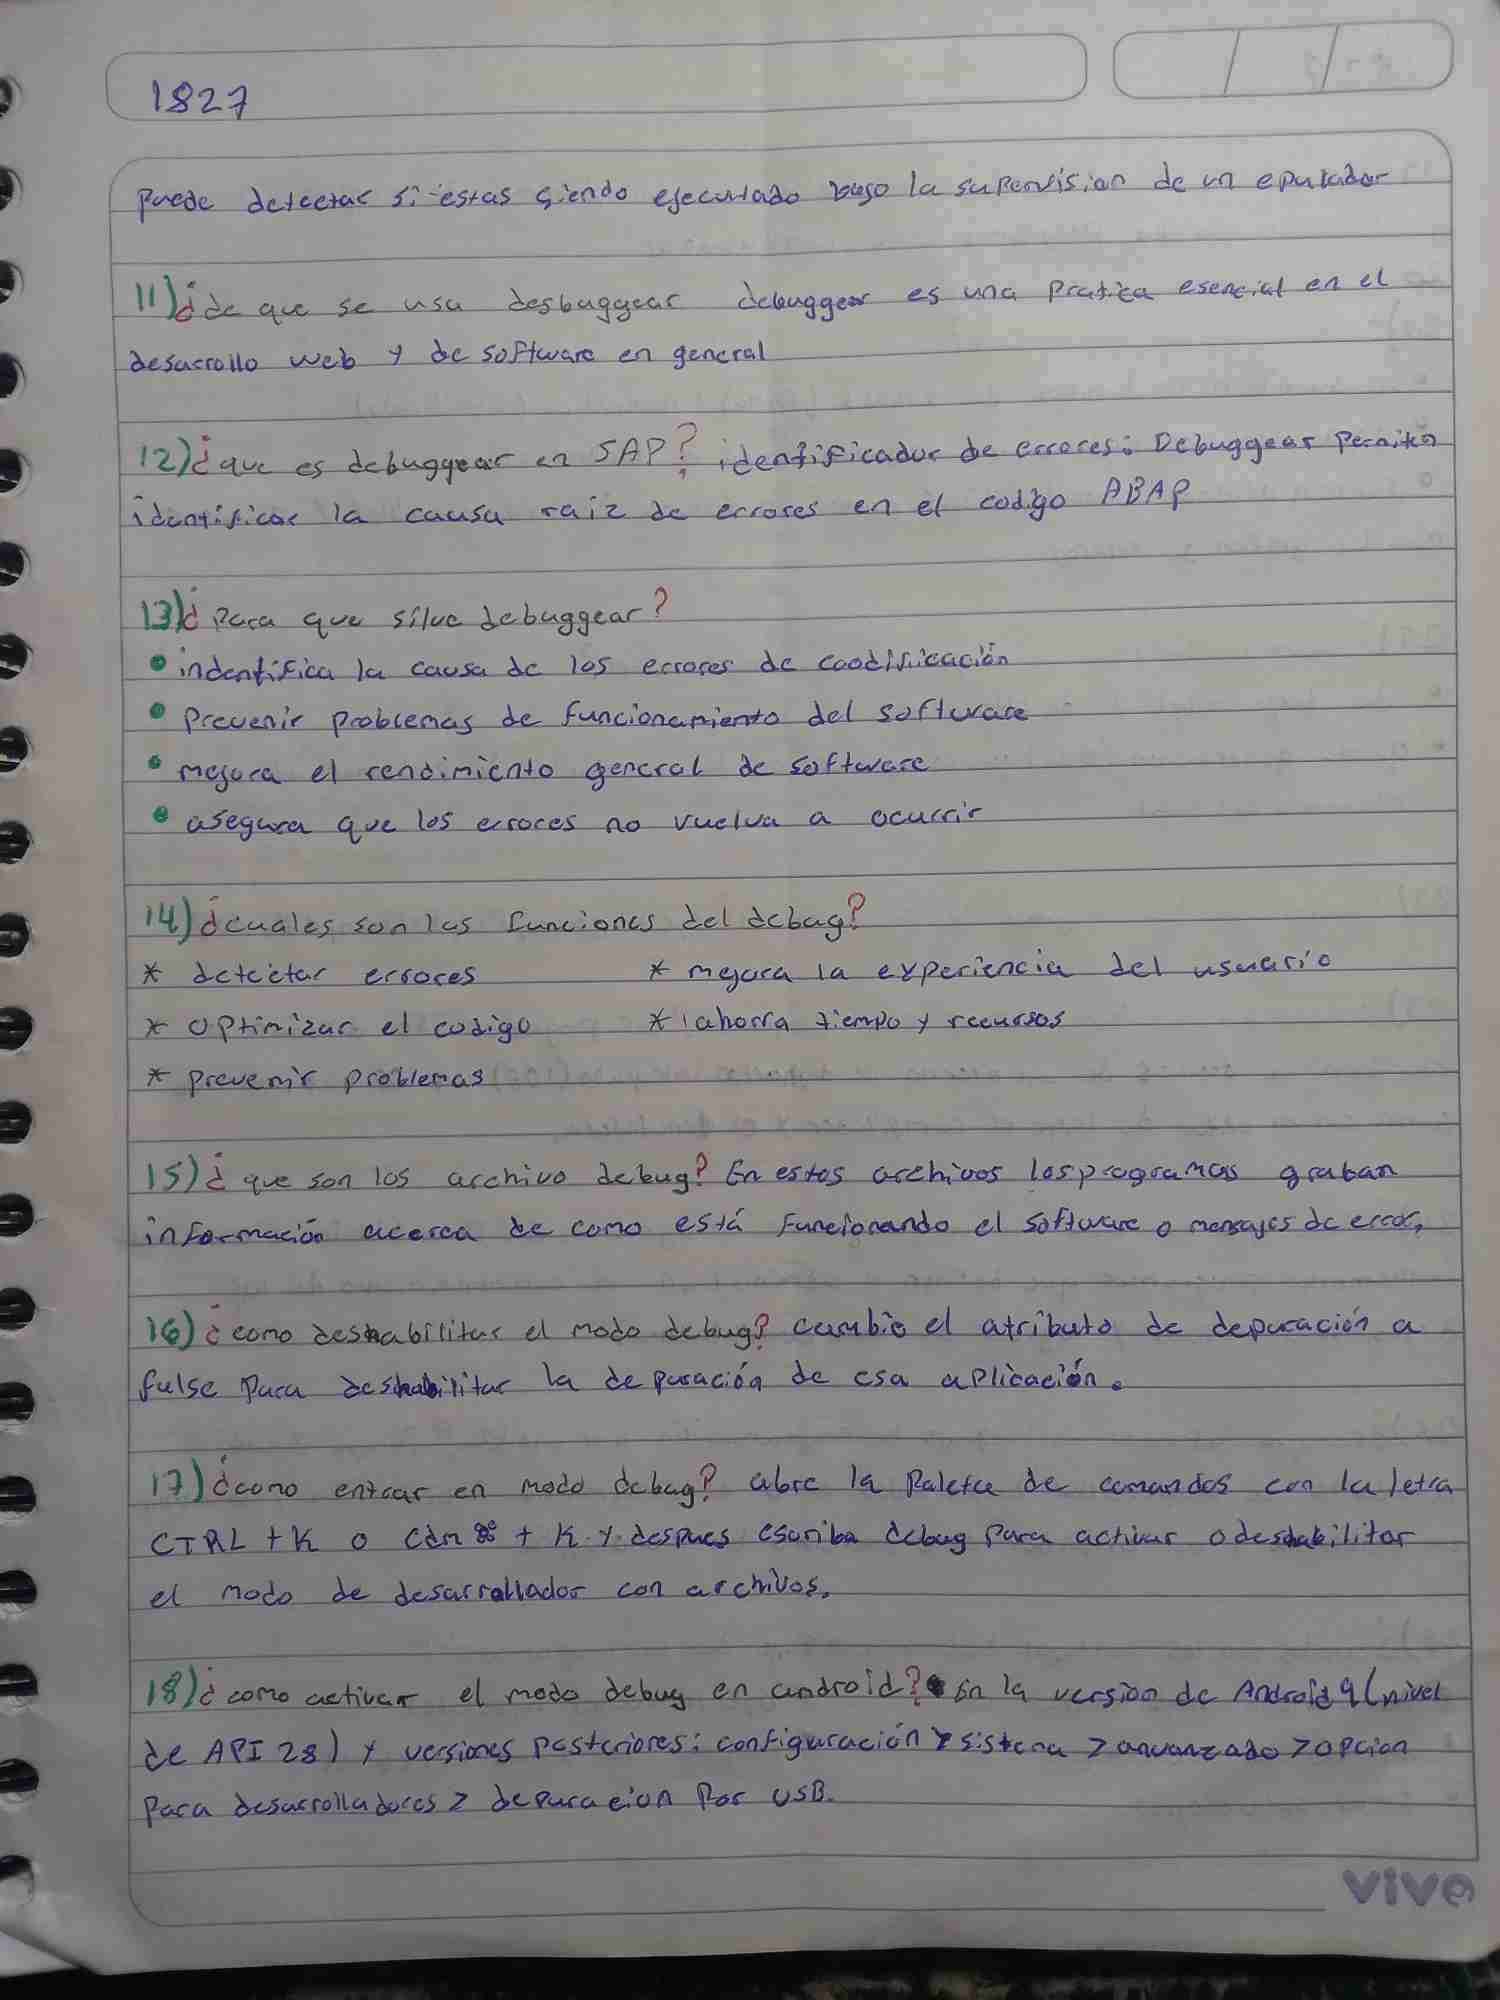 1827
puede detectar si estas siendo ejecutado bajo la supervision de un epurador
11) ¿de que se usa desbuggear debuggear es una pratica esencial en el
desarrollo web y de software en general
12) ¿que es debuggear en SAP? identificador de errores: Debuggear permiten
identificar la causa raiz de errores en el codigo ABAP
13) ¿Para que silve debuggear?
• indentifica la causa de los errores de coodificación
• Prevenir problemas de funcionamiento del software
• mejora el rendimiento general de software
• asegura que los errores no vuelva a ocurrir
14) ¿cuales son las funciones del debug?
* detectar errores * mejora la experiencia del usuario
* optimizar el codigo * ahorra tiempo y recursos
* prevenir problemas
15) ¿que son los archivo debug? En estos archivos los programas graban
información acerca de como está funcionando el software o mensajes de error,
16) ¿como deshabilitar el modo debug? cambie el atributo de depuración a
false para deshabilitar la depuración de esa aplicación.
17) ¿como entrar en modo debug? abre la Paleta de comandos con la letra
CTRL + K o Cdm ⌘ + K y despues escriba debug para activar o deshabilitar
el modo de desarrollador con archivos.
18) ¿como activar el modo debug en android? En la version de Android 9 (nivel
de API 28) y versiones posteriores: configuración > sistema > anvanzado > opcion
para desarrolladores > depuracion por USB.
vive